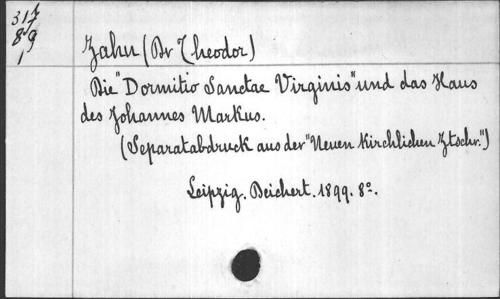 317
89
1
Zahn (Dr Theodor)
Die "Dormitio Sanctae Virginis" und das Haus
des Johannes Markus.
(Separatabdruck aus der "Neuen Kirchlichen Ztschr.")
Leipzig. Deichert. 1899. 8º.